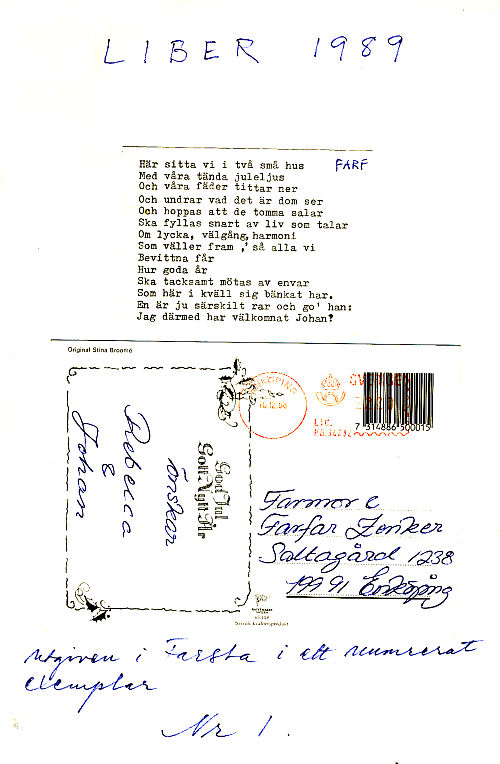 LIBER 1989
Här sitta vi i två små hus FARF
Med våra tända juleljus
Och våra fäder tittar ner
Och undrar vad det är dom ser
Och hoppas att de tomma salar
Ska fyllas snart av liv som talar
Om lycka, välgång, harmoni
Som väller fram ,' så alla vi
Bevittna får
Hur goda år
Ska tacksamt mötas av envar
Som här i kväll sig bänkat har.
En är ju särskilt rar och go' han:
Jag därmed har välkomnat Johan!
Original Stina Broomé
God Jul
Gott Nytt År
önskar
Rebecca
&
Johan
SVERIGE
7 314886 500015
Farmor &
Farfar Zenker
Saltagård 1238
199 91 Enköping
Svensk kvalitetsprodukt
utgiven i Farsta i ett numrerat
exemplar
Nr 1.